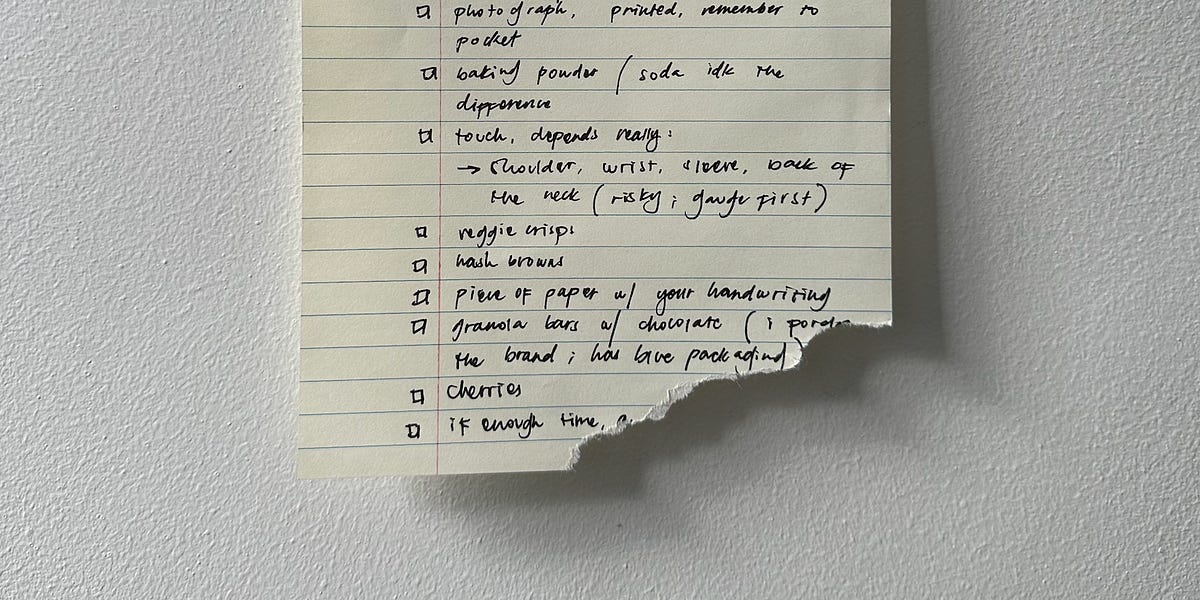 photograph, printed, remember to
pocket
baking powder / soda idk the
difference
touch, depends really:
→ shoulder, wrist, sleeve, back of
the neck (risky; gauge first)
veggie crisps
hash browns
piece of paper w/ your handwriting
granola bars w/ chocolate (i
the brand; has blue packaging)
cherries
if enough time,